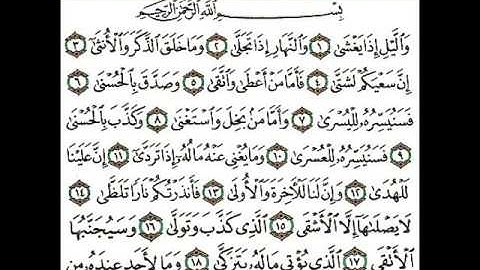 بِسْمِ اللَّهِ الرَّحْمَٰنِ الرَّحِيمِ
وَاللَّيْلِ إِذَا يَغْشَىٰ ١ وَالنَّهَارِ إِذَا تَجَلَّىٰ ٢ وَمَا خَلَقَ الذَّكَرَ وَالْأُنثَىٰ ٣
إِنَّ سَعْيَكُمْ لَشَتَّىٰ ٤ فَأَمَّا مَنْ أَعْطَىٰ وَاتَّقَىٰ ٥ وَصَدَّقَ بِالْحُسْنَىٰ ٦
فَسَنُيَسِّرُهُ لِلْيُسْرَىٰ ٧ وَأَمَّا مَنْ بَخِلَ وَاسْتَغْنَىٰ ٨ وَكَذَّبَ بِالْحُسْنَىٰ
٩ فَسَنُيَسِّرُهُ لِلْعُسْرَىٰ ١٠ وَمَا يُغْنِي عَنْهُ مَالُهُ إِذَا تَرَدَّىٰ ١١ إِنَّ عَلَيْنَا
لَلْهُدَىٰ ١٢ وَإِنَّ لَنَا لَلْآخِرَةَ وَالْأُولَىٰ ١٣ فَأَنذَرْتُكُمْ نَارًا تَلَظَّىٰ ١٤
لَا يَصْلَاهَا إِلَّا الْأَشْقَى ١٥ الَّذِي كَذَّبَ وَتَوَلَّىٰ ١٦ وَسَيُجَنَّبُهَا
الْأَتْقَى ١٧ الَّذِي يُؤْتِي مَالَهُ يَتَزَكَّىٰ ١٨ وَمَا لِأَحَدٍ عِندَهُ مِن